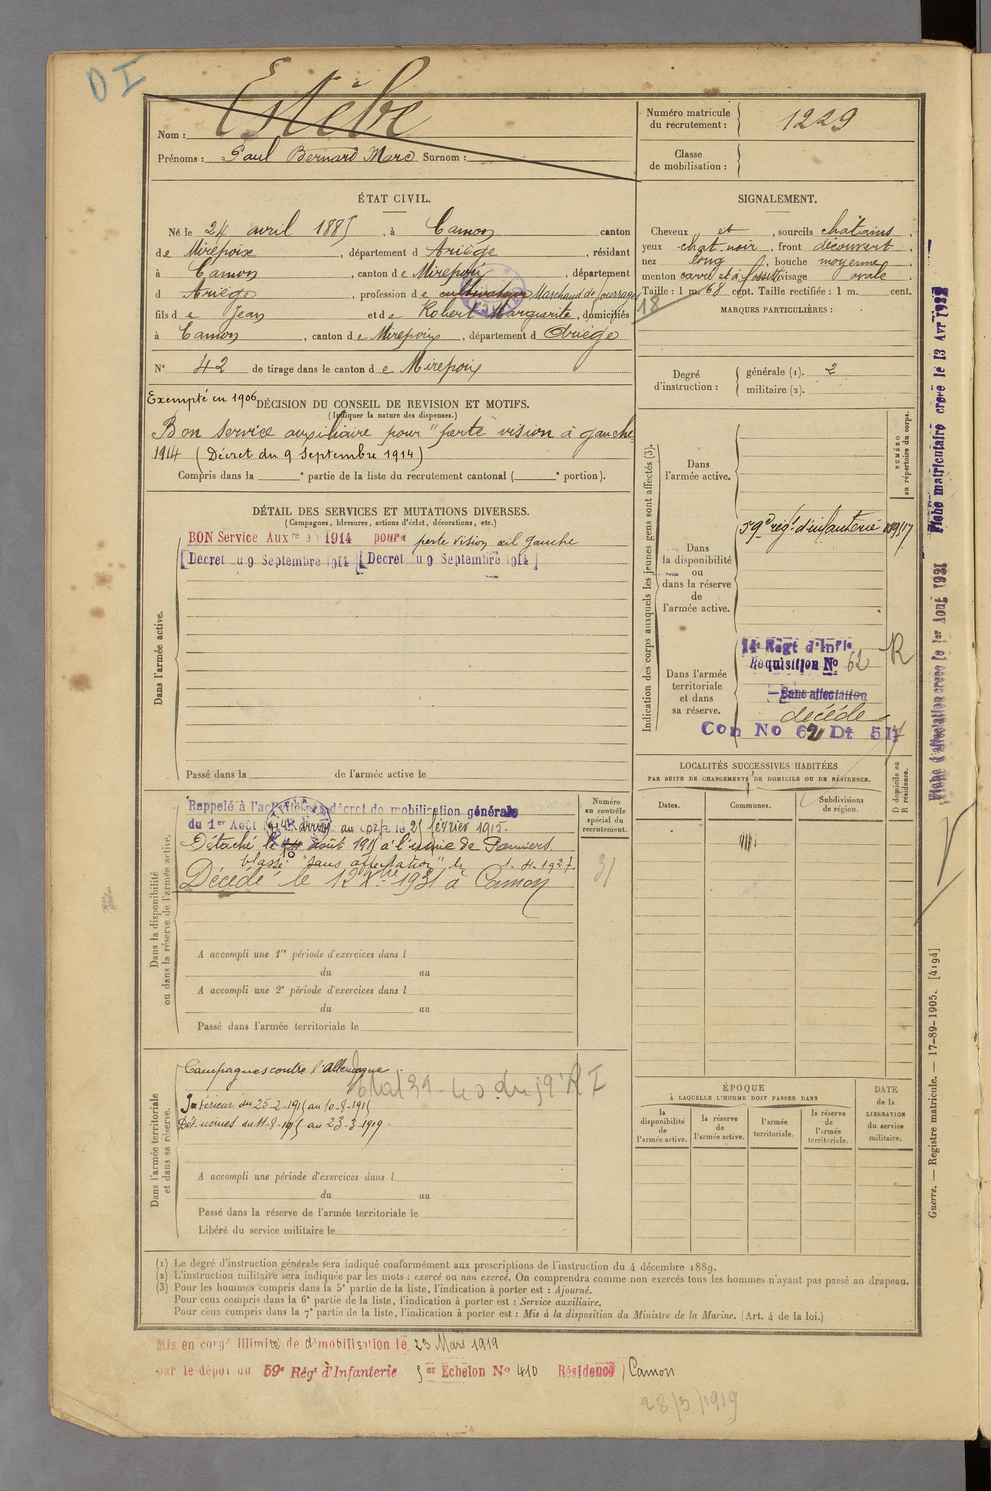 D I
Nom : Estèbe
Prénoms : Paul Bernard Marc Surnom :
Numéro matricule du recrutement : 1229
Classe de mobilisation :
ÉTAT CIVIL.
Né le 24 avril 1885, à Camon canton
de Mirepoix, département d Ariège, résidant
à Camon, canton de Mirepoix, département
d Ariège, profession de cultivateur Marchand de fourrages
fils de Jean et de Robert Marguerite, domiciliés
à Camon, canton de Mirepoix, département d Ariège
N° 42 de tirage dans le canton de Mirepoix
SIGNALEMENT.
Cheveux et, sourcils châtains.
yeux chat. noir, front découvert.
nez long, bouche moyenne
menton carré et à fossette visage ovale
Taille : 1 m. 68 cent. Taille rectifiée : 1 m. cent.
18
MARQUES PARTICULIÈRES :
Degré d'instruction : générale (1). 2
militaire (2).
Exempté en 1906
DÉCISION DU CONSEIL DE REVISION ET MOTIFS.
(Indiquer la nature des dispenses.)
Bon service auxiliaire pour "perte vision à gauche
1914 (Décret du 9 Septembre 1914)
Compris dans la e partie de la liste du recrutement cantonal ( e portion).
DÉTAIL DES SERVICES ET MUTATIONS DIVERSES.
(Campagnes, blessures, actions d'éclat, décorations, etc.)
BON Service Auxre en 1914 pour perte vision œil gauche
[Decret du 9 Septembre 1914] [Decret du 9 Septembre 1914]
Dans l'armée active.
Passé dans la de l'armée active le
Indication des corps auxquels les jeunes gens sont affectés (3).
NUMÉRO au répertoire du corps.
Dans l'armée active.
Dans la disponibilité ou dans la réserve de l'armée active.
59e rég.t d'infanterie
Dans l'armée territoriale et dans sa réserve.
14e Régt d'Infie
Réquisition No 62
R
Sans affectation
décédé
Con No 62 Dt 517
LOCALITÉS SUCCESSIVES HABITÉES
PAR SUITE DE CHANGEMENTS DE DOMICILE OU DE RÉSIDENCE.
Dates. Communes. Subdivisions de région. D domicile ou R résidence.
Dans la disponibilité ou dans la réserve de l'armée active.
Numéro au contrôle spécial du recrutement.
31
Rappelé à l'activité décret de mobilisation générale
du 1er Août 1914 arrivé au corps le 25 février 1915.
Détaché le août 1915 à l'usine de Pamiers
10
classé "sans affectation" le 1. 11. 1927.
Décédé le 12 Xbre 1931 à Camon
A accompli une 1re période d'exercices dans l
du au
A accompli une 2e période d'exercices dans l
du au
Passé dans l'armée territoriale le
Dans l'armée territoriale et dans sa réserve.
Campagnes contre l'Allemagne
Etat 39-40 du 59e R I
Intérieur du 25-2-1915 au 10-8-1915
Dét. usines du 11-8-1915 au 23-3-1919
A accompli une période d'exercices dans l
du au
Passé dans la réserve de l'armée territoriale le
Libéré du service militaire le
ÉPOQUE
À LAQUELLE L'HOMME DOIT PASSER DANS
la disponibilité de l'armée active. la réserve de l'armée active. l'armée territoriale. la réserve de l'armée territoriale.
DATE de la LIBÉRATION du service militaire.
(1) Le degré d'instruction générale sera indiqué conformément aux prescriptions de l'instruction du 4 décembre 1889.
(2) L'instruction militaire sera indiquée par les mots : exercé ou non exercé. On comprendra comme non exercés tous les hommes n'ayant pas passé au drapeau.
(3) Pour les hommes compris dans la 5e partie de la liste, l'indication à porter est : Ajourné.
Pour ceux compris dans la 6e partie de la liste, l'indication à porter est : Service auxiliaire.
Pour ceux compris dans la 7e partie de la liste, l'indication à porter est : Mis à la disposition du Ministre de la Marine. (Art. 4 de la loi.)
Mis en congé illimité de démobilisation le 23 Mars 1919
par le dépôt du 59e Régt d'Infanterie 5er Echelon No 410 Résidence Camon
28/3/1919
Fiche d'affectation créée le 1er Août 1921 Fiche matriculaire créée le 13 Avr 1922
Guerre. — Registre matricule. — 17-89-1905. [4194]